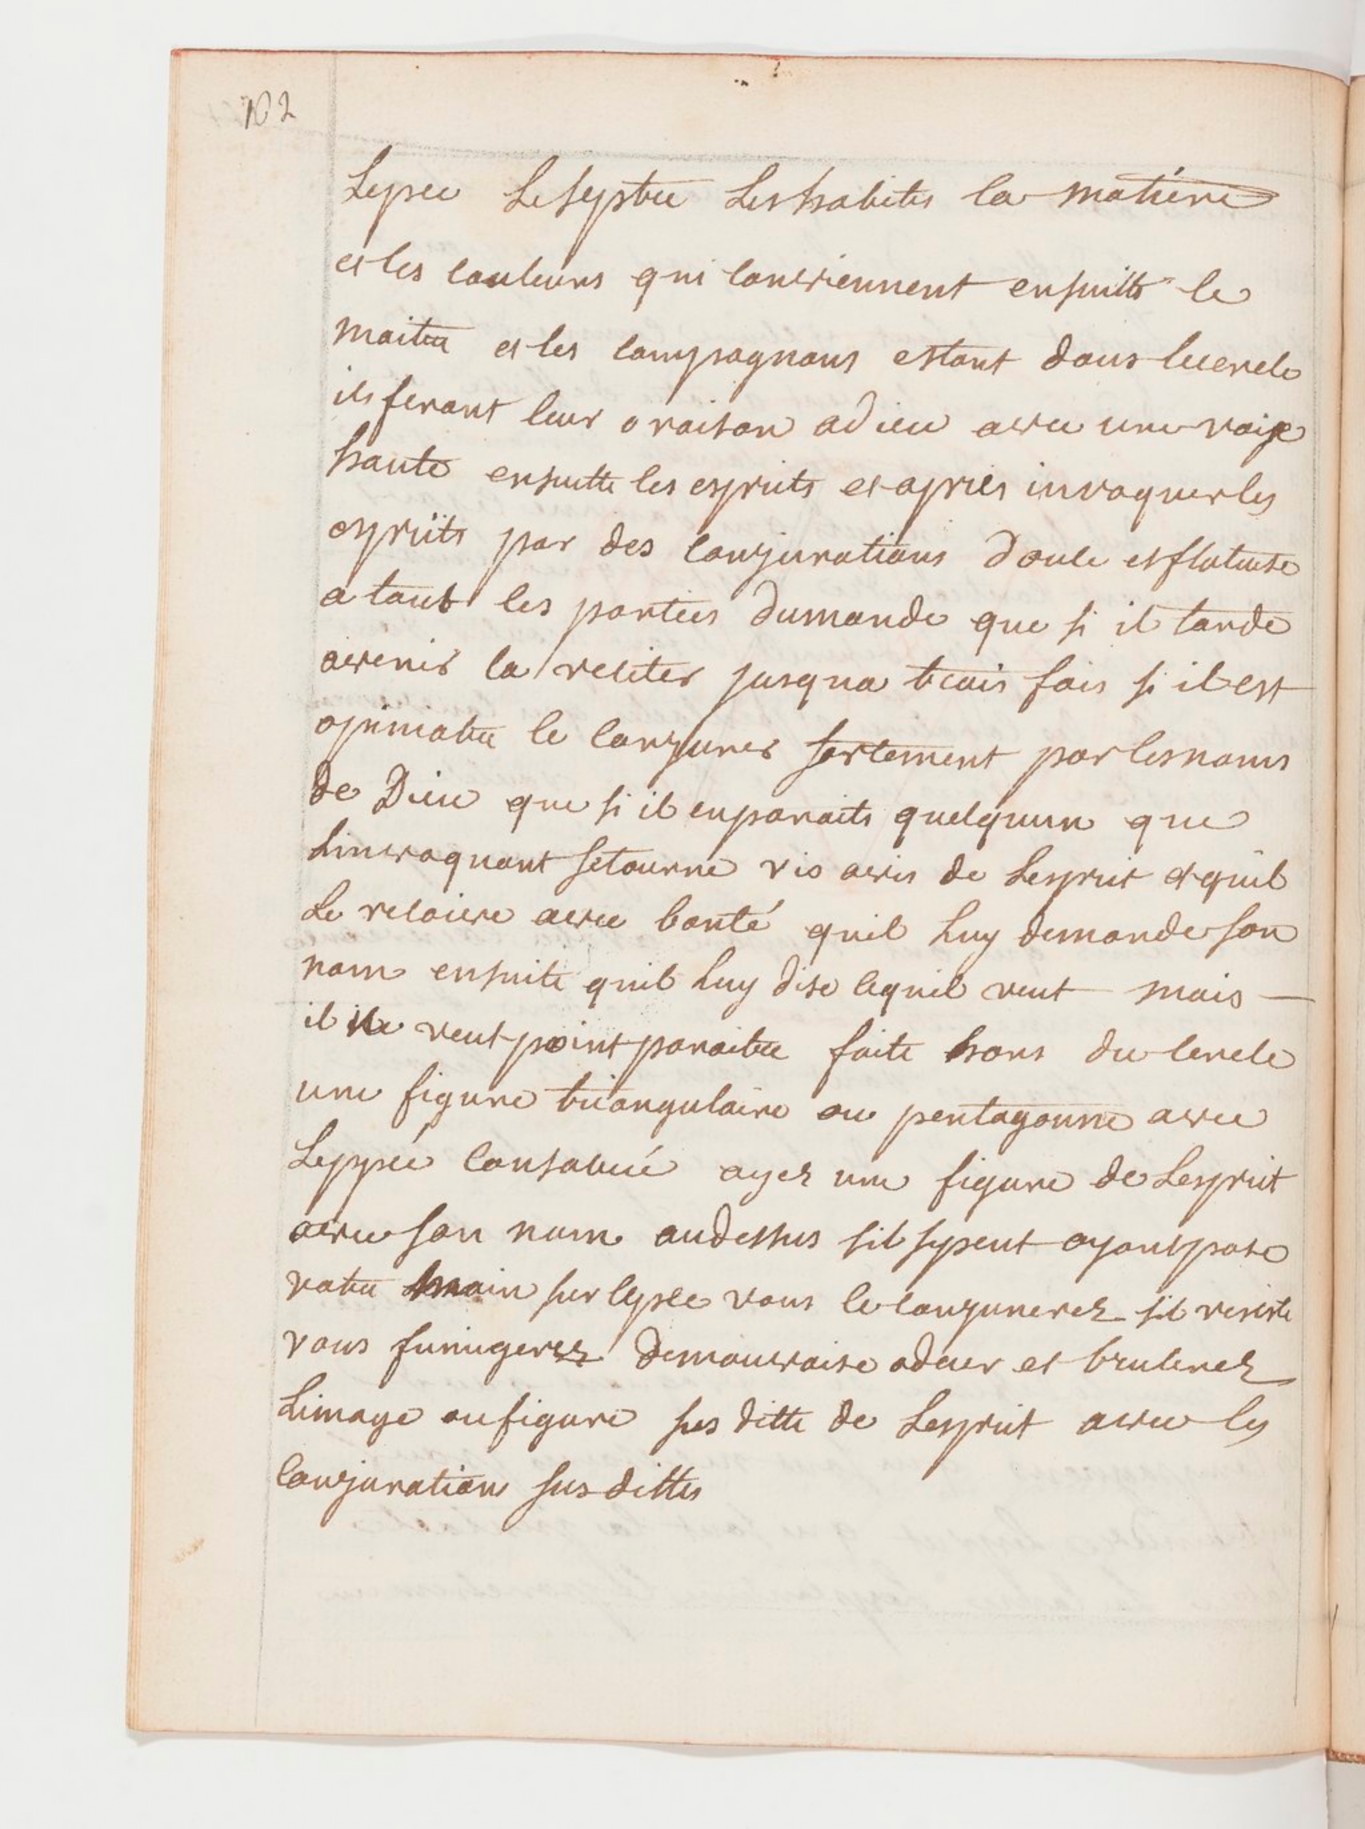 102
Lepee Le septre Les habites la matiere
et les couleurs qui conviennent ensuitte le
maitre et les compagnons estant dans lecercle
ils feront leur oraison adieu avec une voix
haute ensuitte les esprits et apries invoquer les
esprits par des conjurations douce et flateuse
a tout les parties dumonde que si il tarde
avenir la reciter jusqua trois fois si il est
opiniatre le conjurer fortement par les noms
de Dieu que si il enparaits quelquun que
Linvoquant setourne vis avis de Lesprit et quil
Le recoive avec bonté quil Luy demande son
nom ensuite quil Luy dise cequil veut mais —
il ne veut point paraitre faite hors du cercle
une figure triangulaire ou pentagonne avec
Leppeé consacreé ayez une figure de Lesprit
avec son nom audessus sil sypeut ayant posé
votre main sur lepee vous le conjurerez sil resiste
vous fumigerez demauvaise odeur et brulerez
Limage ou figure sus ditte de Lesprit avec les
conjuration sus dittes